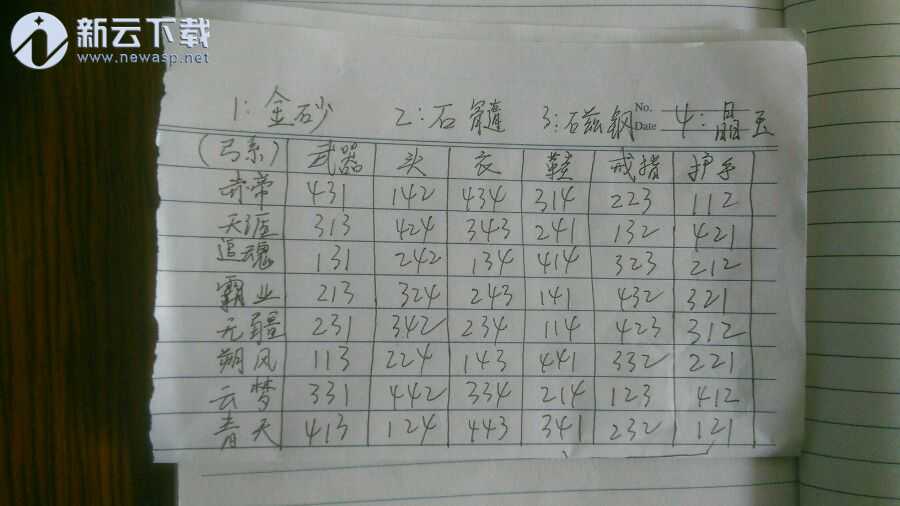 新云下载
www.newasp.net
No.
1:金砂 2:石髓 3:磁钢 Date 4:晶玉
(弓系) 武器 头 衣 鞋 戒指 护手
431 142 434 314 223 112
天涯 313 424 343 241 132 421
追魂 131 242 134 414 323 212
霸业 213 324 243 141 432 321
无疆 231 342 234 114 423 312
朔风 113 224 143 441 332 221
云梦 331 442 334 214 123 412
青天 413 124 443 341 232 121